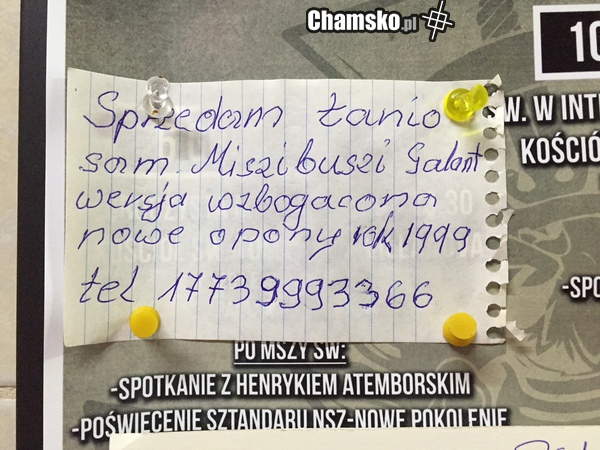 Chamsko.pl
10
W. W INT
KOŚCIÓ
Sprzedam tanio
sam Miszibuszi Galant
wersja wzbogacona
nowe opony rok 1999
tel 17739993366
-SPO
PO MSZY ŚW:
-SPOTKANIE Z HENRYKIEM ATEMBORSKIM
-POŚWIĘCENIE SZTANDARU NSZ-NOWE POKOLENIE